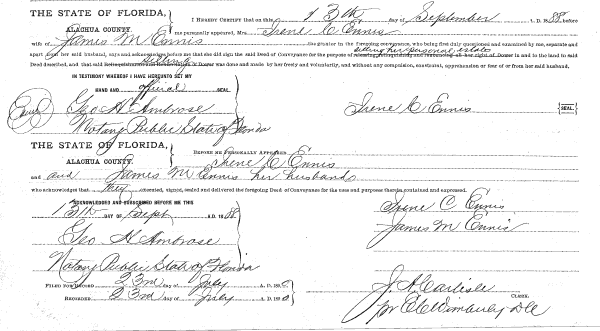 THE STATE OF FLORIDA, I HEREBY CERTIFY that on this 13th day of September A. D. 1888, before
ALACHUA COUNTY. me personally appeared, Mrs. Irene C Ennis
wife of James M Ennis the grantor in the foregoing conveyance, who being first duly questioned and examined by me, separate and
apart from her said husband, says and acknowledges before me that she did sign the said Deed of Conveyance for the purpose of selling her personal estate in the land in the said
Deed described, and that said selling was made by her freely and voluntarily, and without any compulsion, constraint, apprehension or fear of or from her said husband.
IN TESTIMONY WHEREOF I HAVE HEREUNTO SET MY
HAND AND official SEAL.
Geo H Ambrose Irene C Ennis SEAL.
Notary Public State of Florida
THE STATE OF FLORIDA,
ALACHUA COUNTY. BEFORE ME PERSONALLY APPEARED Irene C Ennis
and James M Ennis her husband
who acknowledged that they executed, signed, sealed and delivered the foregoing Deed of Conveyance for the uses and purposes therein contained and expressed.
ACKNOWLEDGED AND SUBSCRIBED BEFORE ME THIS
13th DAY OF Sept A. D. 1888 Irene C. Ennis
Geo H Ambrose James M Ennis
Notary Public State of Florida
FILED FOR RECORD 23rd day of July A. D. 1890 J A Carlisle CLERK.
RECORDED 23rd day of July A. D. 1890 pr E C Wimberly D C